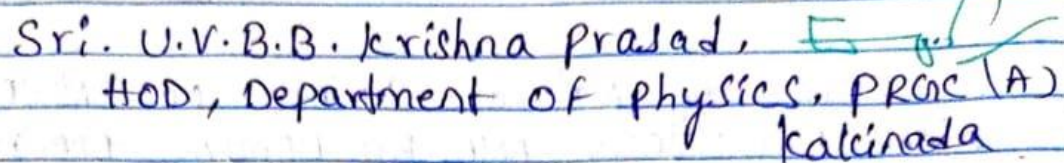 Sri. U.V.B.B. Krishna Prasad,
HOD, Department of Physics, PRGC (A)
Kakinada